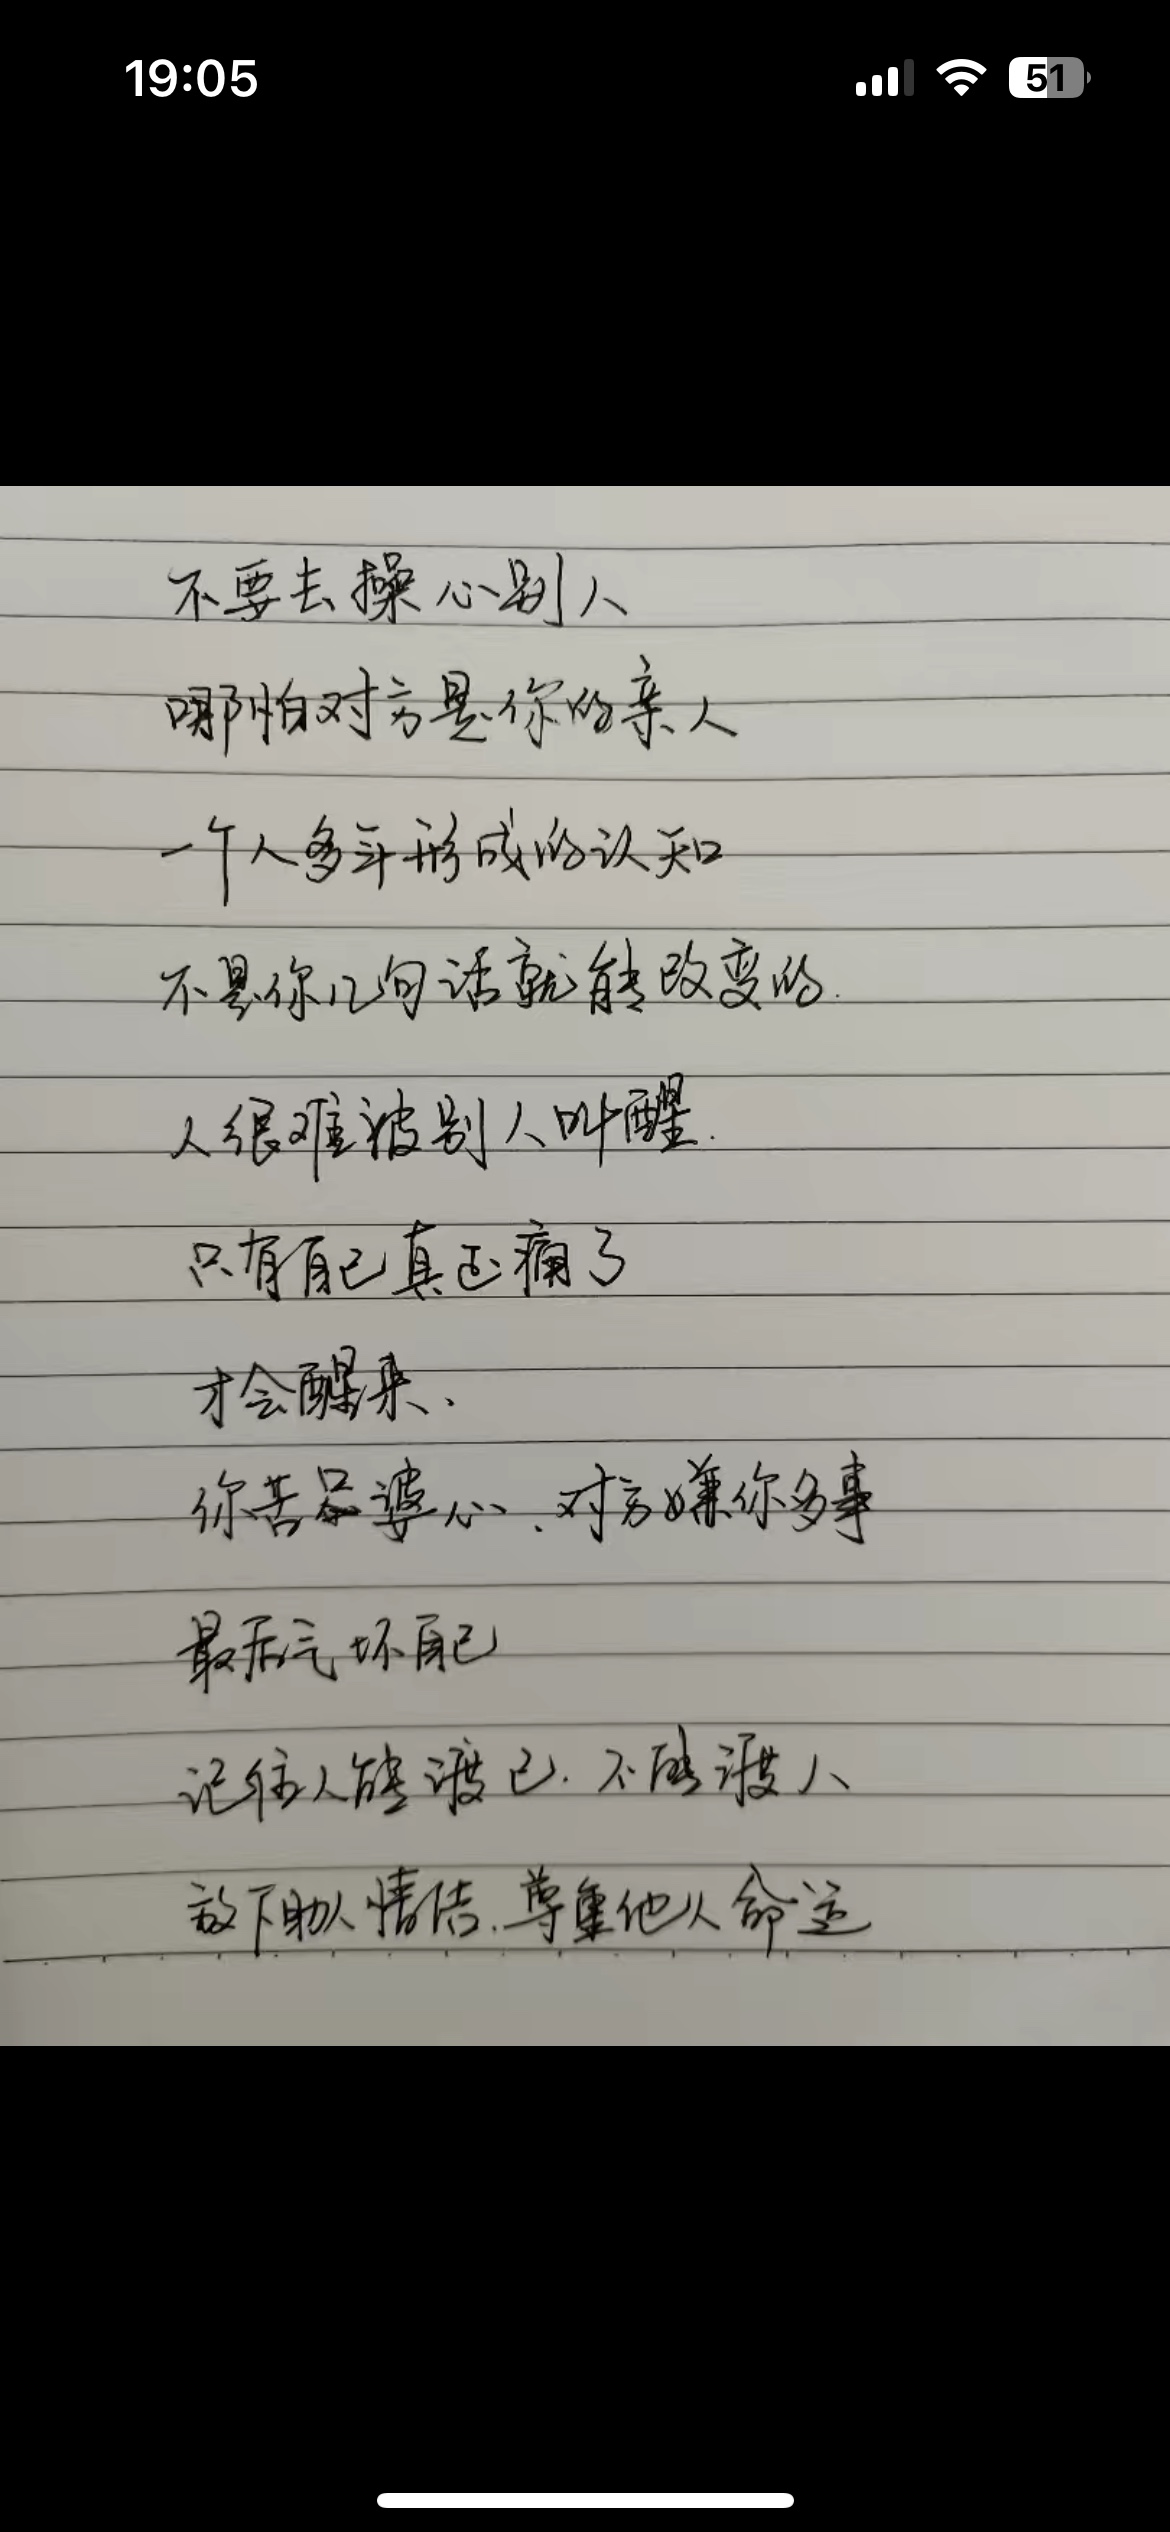 19:05
51
不要去操心别人
哪怕对方是你的亲人
一个人多年形成的认知
不是你几句话就能改变的.
人很难被别人叫醒.
只有自己真正痛了
才会醒来、
你苦口婆心、对方嫌你多事
最后气坏自己
记住人能渡己.不能渡人
放下助人情结.尊重他人命运